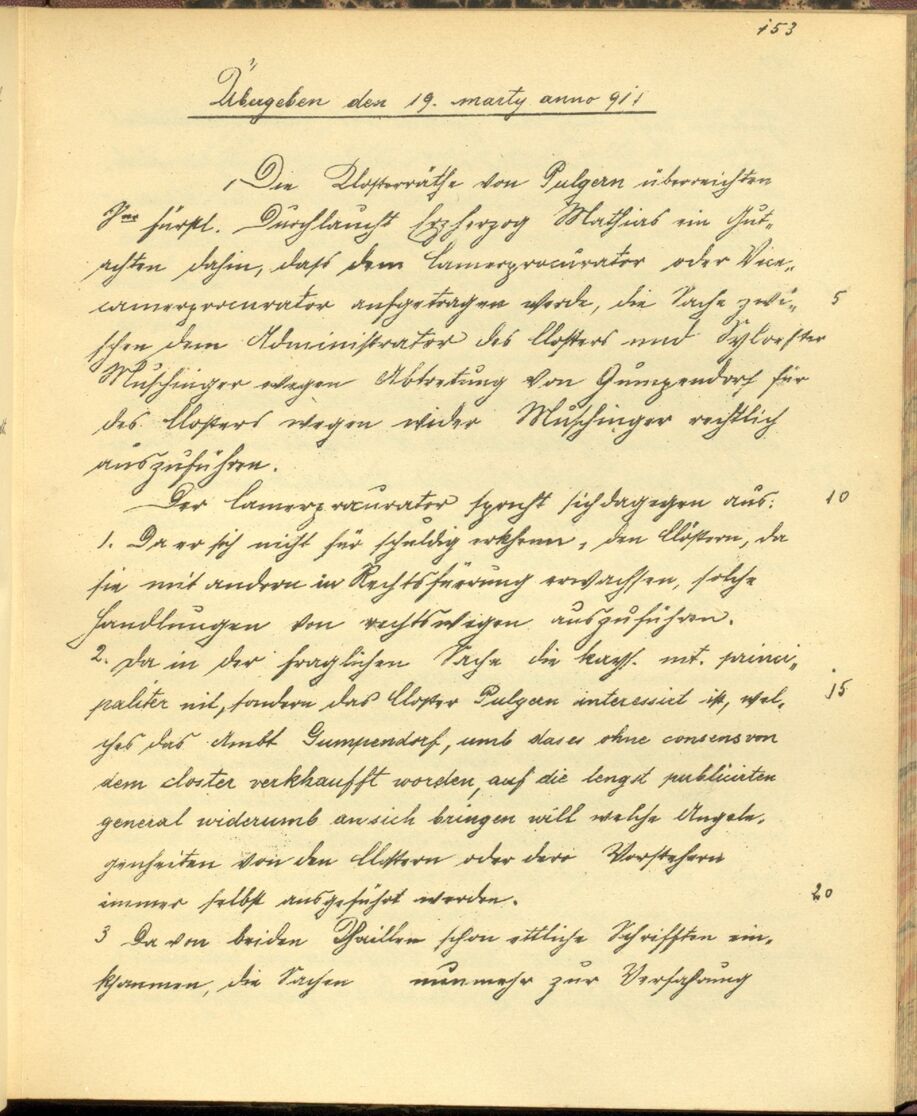 153
Übergeben den 19. marty anno 911
Die Klosterräthe von Pulgern überreichten
Sr fürstl. Durchlaucht Erzherzog Mathias ein Gut-
achten dahin, dass dem Camerprocurator oder Vice-
camerprocurator aufgetragen werde, die Sache zwi- 5
schen dem Administrator des Closters und Sylvester
Muschinger wegen Abtretung von Gumpendorf für
des Closters wegen wider Muschinger rechtlich
auszuführen.
Der Camerprocurator spricht sich dagegen aus: 10
1. Da er sich nicht für schuldig erkhenn, den Clöstern, da
sie mit andern in Rechtsfürrung erwachssen, solche
Handlungen von rechtswegen auszuführen.
2. Da in der fraglichen Sache die kays. mt. princi-
paliter nit, sondern das Closter Pulgern interessirt ist, wel- 15
ches das Ambt Gumpendorf, umb das es ohne consens von
dem closter verkhaufft worden, auf die lengst publicirten
general widerumb an sich bringen will welche Angele-
genheiten von den Clöstern oder dero Vorstehern
immer selbst ausgeführt werden. 20
3 Da von beiden Thaillen schon ettliche Schrifften ein-
khommen, die Sachen nunmehr zur Verfahrung